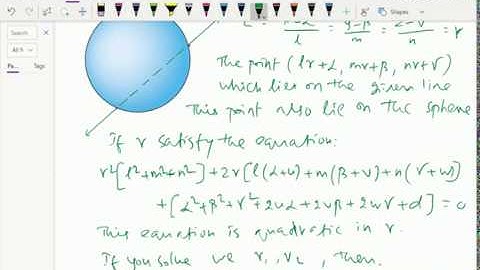 Shapes
Search
All
Pa
= (x-α)/l = (y-β)/m = (z-γ)/n = r
The point (lr+α, mr+β, nr+γ)
which lies on the given line
This point also lie on the sphere
If r satisfy the equation:
r²[l²+m²+n²] + 2r[l(α+u)+m(β+v)+n(γ+w)]
+[α²+β²+γ²+2uα+2vβ+2wγ+d] = 0
This equation is quadratic in r.
If you solve we r₁, r₂, then.